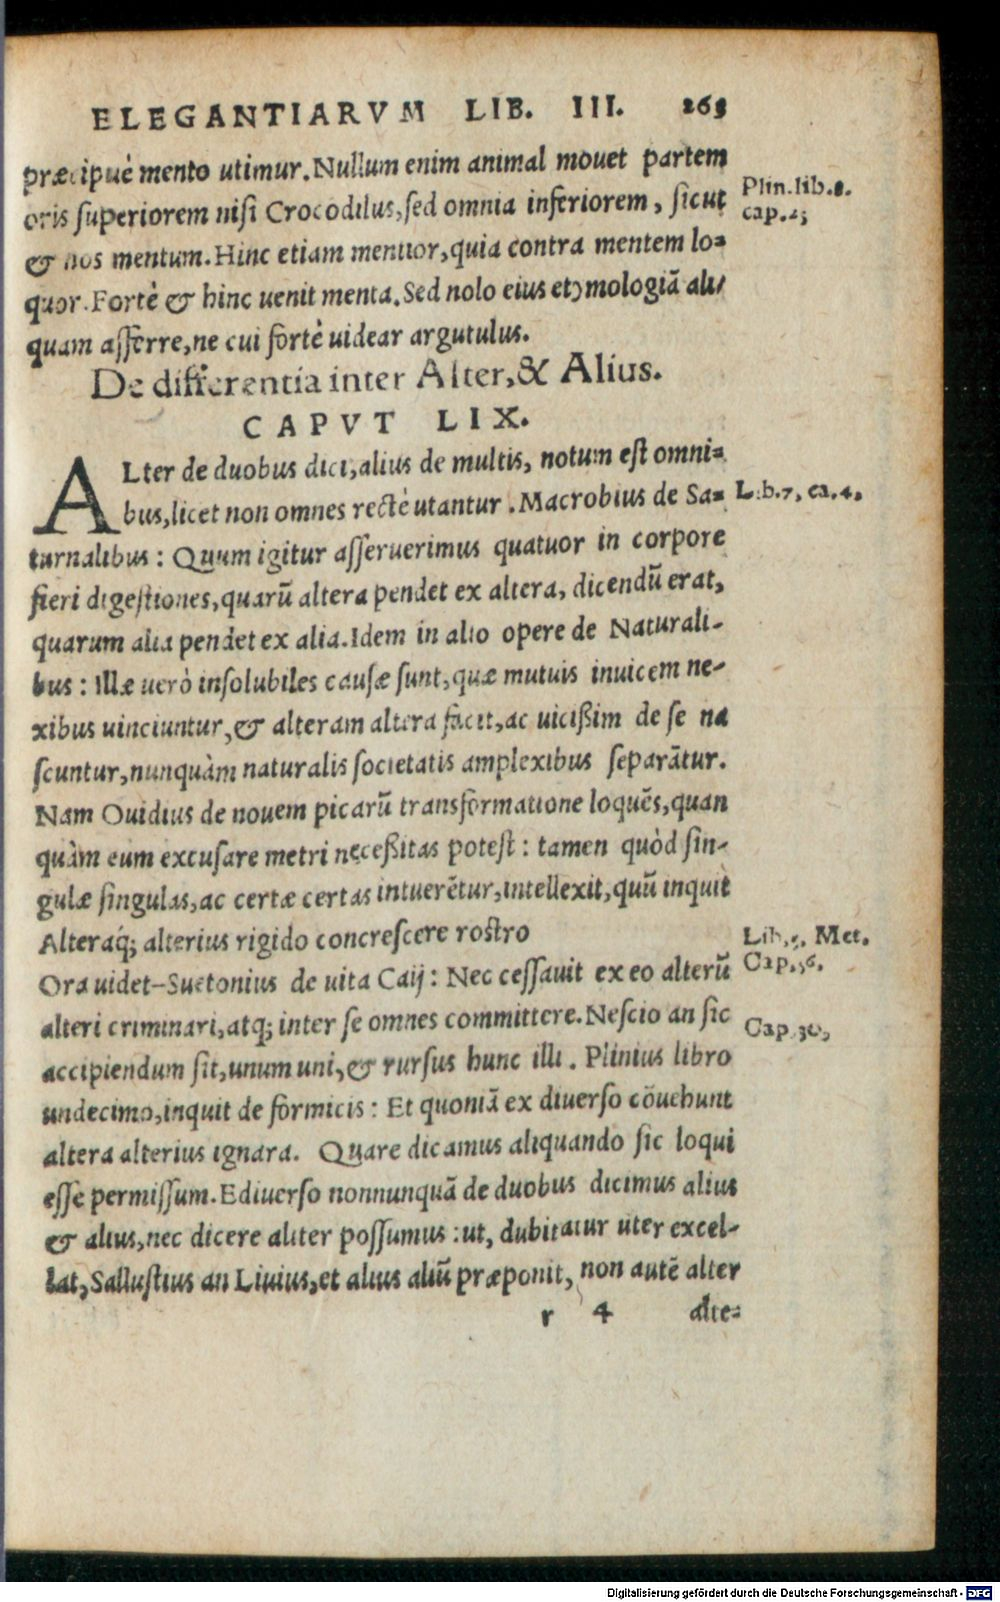 ELEGANTIARVM LIB. III. 263
præcipuè mento utimur. Nullum enim animal mouet partem
oris superiorem nisi Crocodilus, sed omnia inferiorem, sicut
& nos mentum. Hinc etiam mentior, quia contra mentem lo=
quor. Fortè & hinc uenit menta. Sed nolo eius etymologiã ali/
quam afferre, ne cui fortè uidear argutulus.
Plin. lib. 8.
cap. 25
De differentia inter Alter, & Alius.
CAPVT LIX.
ALter de duobus dici, alius de multis, notum est omni=
bus, licet non omnes rectè utantur. Macrobius de Sa=
Lib. 7. ca. 4.
turnalibus: Quum igitur asseruerimus quatuor in corpore
fieri digestiones, quarũ altera pendet ex altera, dicendũ erat,
quarum alia pendet ex alia. Idem in alio opere de Naturali-
bus: Illæ uerò insolubiles causæ sunt, quæ mutuis inuicem ne-
xibus uinciuntur, & alteram altera facit, ac uicißim de se na
scuntur, nunquàm naturalis societatis amplexibus separãtur.
Nam Ouidius de nouem picarũ transformatione loquẽs, quan
quàm eum excusare metri neceßitas potest: tamen quòd sin-
gulæ singulas, ac certæ certas intuerẽtur, intellexit, quũ inquit
Alteraq́; alterius rigido concrescere rostro
Lib. 5. Met.
Ora uidet-Suetonius de uita Caij: Nec cessauit ex eo alterũ
Cap. 56.
alteri criminari, atq; inter se omnes committere. Nescio an sic
Cap. 30,
accipiendum sit, unum uni, & rursus hunc illi. Plinius libro
undecimo, inquit de formicis: Et quoniã ex diuerso cõuehunt
altera alterius ignara. Quare dicamus aliquando sic loqui
esse permissum. Ediuerso nonnunquã de duobus dicimus alius
& alius, nec dicere aliter possumus: ut, dubitatur uter excel-
lat, Sallustius an Liuius, et alius aliũ præponit, non autẽ alter
r 4 alte=
Digitalisierung gefördert durch die Deutsche Forschungsgemeinschaft - DFG